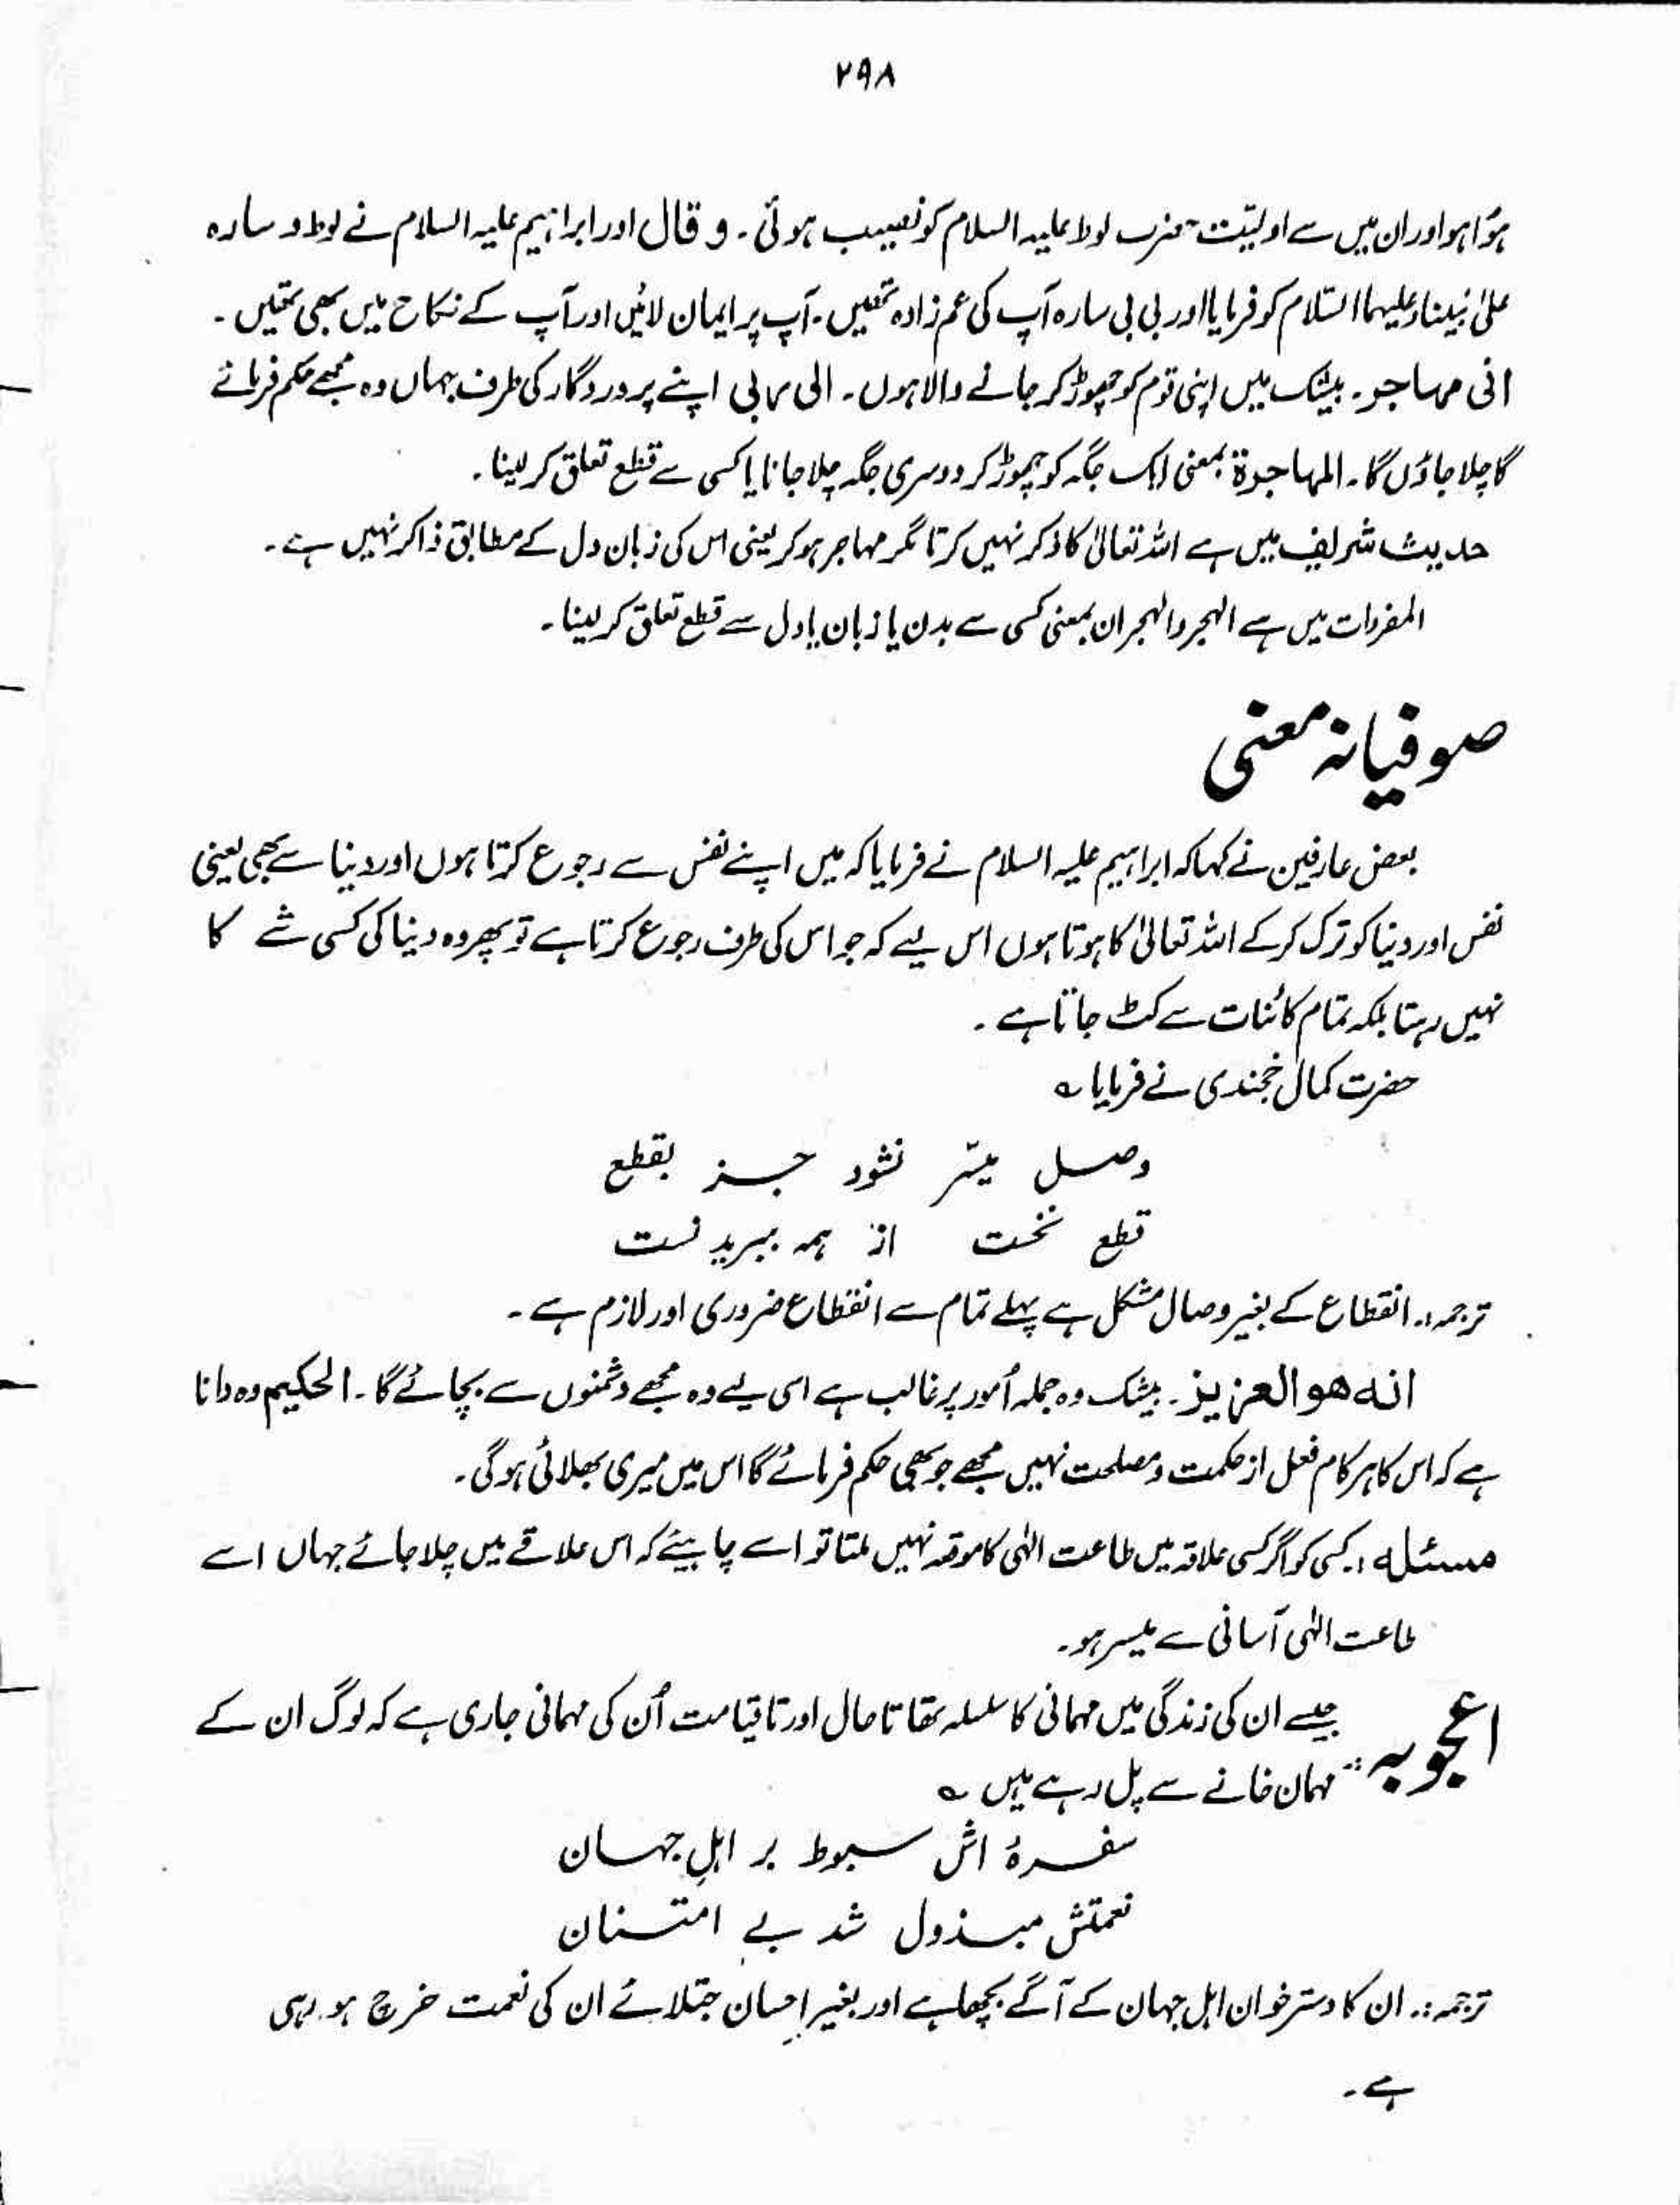 ۲۹۸
ہؤا ہو اور ان میں سے اولیّت حضرت لوط علیہ السلام کو نصیب ہوئی ۔ و قال اور ابراہیم علیہ السلام نے لوط و سارہ
علیٰ نبینا وعلیہما السّلام کو فرمایا اور بی بی سارہ آپ کی عم زادہ تھیں ۔ آپ پر ایمان لائیں اور آپ کے نکاح میں بھی تھیں ۔
انی مہاجر ۔ بیشک میں اپنی قوم کو چھوڑ کر جانے والا ہوں ۔ الی ربی اپنے پروردگار کی طرف جہاں وہ مجھے حکم فرمائے
گا چلا جاؤں گا ۔ المہاجرۃ بمعنی ایک جگہ کو چھوڑ کر دوسری جگہ چلا جانا یا کسی سے قطع تعلق کر لینا ۔
حدیث شریف میں ہے اللہ تعالیٰ کا ذکر نہیں کرتا مگر مہاجر ہو کر یعنی اس کی زبان دل کے مطابق ذاکر نہیں ہے ۔
المفردات میں ہے الہجر والہجران بمعنی کسی سے بدن یا زبان یا دل سے قطع تعلق کر لینا ۔
صوفیانہ معنی
بعض عارفین نے کہا کہ ابراہیم علیہ السلام نے فرمایا کہ میں اپنے نفس سے رجوع کرتا ہوں اور دنیا سے بھی یعنی
نفس اور دنیا کو ترک کر کے اللہ تعالیٰ کا ہوتا ہوں اس لیے کہ جو اس کی طرف رجوع کرتا ہے تو پھر وہ دنیا کی کسی شے کا
نہیں رہتا بلکہ تمام کائنات سے کٹ جاتا ہے ۔
حضرت کمال خجندی نے فرمایا ؎
وصل میسّر نشود جز بقطع
قطع نخست از ہمہ ببرید نست
ترجمہ :۔ انقطاع کے بغیر وصال مشکل ہے پہلے تمام سے انقطاع ضروری اور لازم ہے ۔
انہ ھو العزیز ۔ بیشک وہ جملہ اُمور پر غالب ہے اسی لیے وہ مجھے دشمنوں سے بچائے گا ۔ الحکیم وہ دانا
ہے کہ اس کا ہر کام فعل از حکمت و مصلحت نہیں مجھے جو بھی حکم فرمائے گا اس میں میری بھلائی ہوگی ۔
مسئلہ :۔ کسی کو اگر کسی علاقہ میں طاعت الٰہی کا موقہ نہیں ملتا تو اسے چاہیئے کہ اس علاقے میں چلا جائے جہاں اسے
طاعت الٰہی آسانی سے میسر ہو ۔
اعجوبہ :۔ جیسے ان کی زندگی میں مہمانی کا سلسلہ تھا تا حال اور تا قیامت اُن کی مہمانی جاری ہے کہ لوگ ان کے
مہمان خانے سے پل رہے ہیں ؎
سفرۂ اش سبوط بر اہلِ جہان
نعمتش مبذول شد بے امتنان
ترجمہ :۔ ان کا دسترخوان اہل جہان کے آگے بچھا ہے اور بغیر احسان جتلائے ان کی نعمت خرچ ہو رہی
ہے ۔